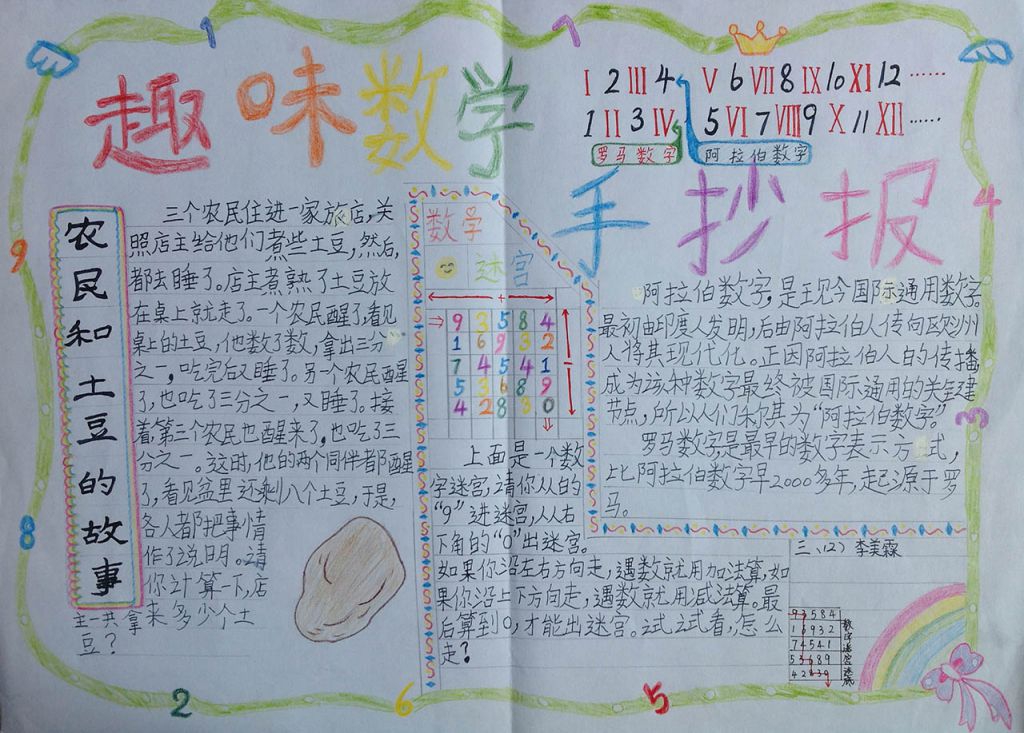 趣味数学
手抄报
I 2 III 4 V 6 VII 8 IX 10 XI 12 ……
1 II 3 IV 5 VI 7 VIII 9 X 11 XII ……
罗马数字 阿拉伯数字
农民和土豆的故事
三个农民住进一家旅店,关
照店主给他们煮些土豆,然后,
都去睡了。店主煮熟了土豆放
在桌上就走了。一个农民醒了,看见
桌上的土豆,他数了数,拿出三分
之一,吃完后又睡了。另一个农民醒
了,也吃了三分之一,又睡了。接
着,第三个农民也醒来了,也吃了三
分之一。这时,他的两个同伴都醒
了,看见盆里还剩八个土豆,于是,
各人都把事情
作了说明。请
你计算一下,店
主一共拿来多少个土
豆?
数学
迷宫
+
9 3 5 8 4
1 6 9 3 2
7 4 5 4 1
5 3 6 8 9
4 2 8 3 0
上面是一个数
字迷宫,请你从的
“9”进迷宫,从右
下角的“0”出迷宫。
如果你沿左右方向走,遇数就用加法算,如
果你沿上下方向走,遇数就用减法算。最
后算到0,才能出迷宫。试试看,怎么
走?
阿拉伯数字,是现今国际通用数字。
最初由印度人发明,后由阿拉伯人传向欧洲
人将其现代化。正因阿拉伯人的传播,
成为该种数字最终被国际通用的关键
节点,所以人们称其为“阿拉伯数字”。
罗马数字,是最早的数字表示方式,
比阿拉伯数字早2000多年,起源于罗
马。
三、(2) 李美霖
9 3 5 8 4
1 6 9 3 2
7 4 5 4 1
5 3 6 8 9
4 2 8 3 0
数字迷宫迷底
1
7
4
3
5
6
2
8
9